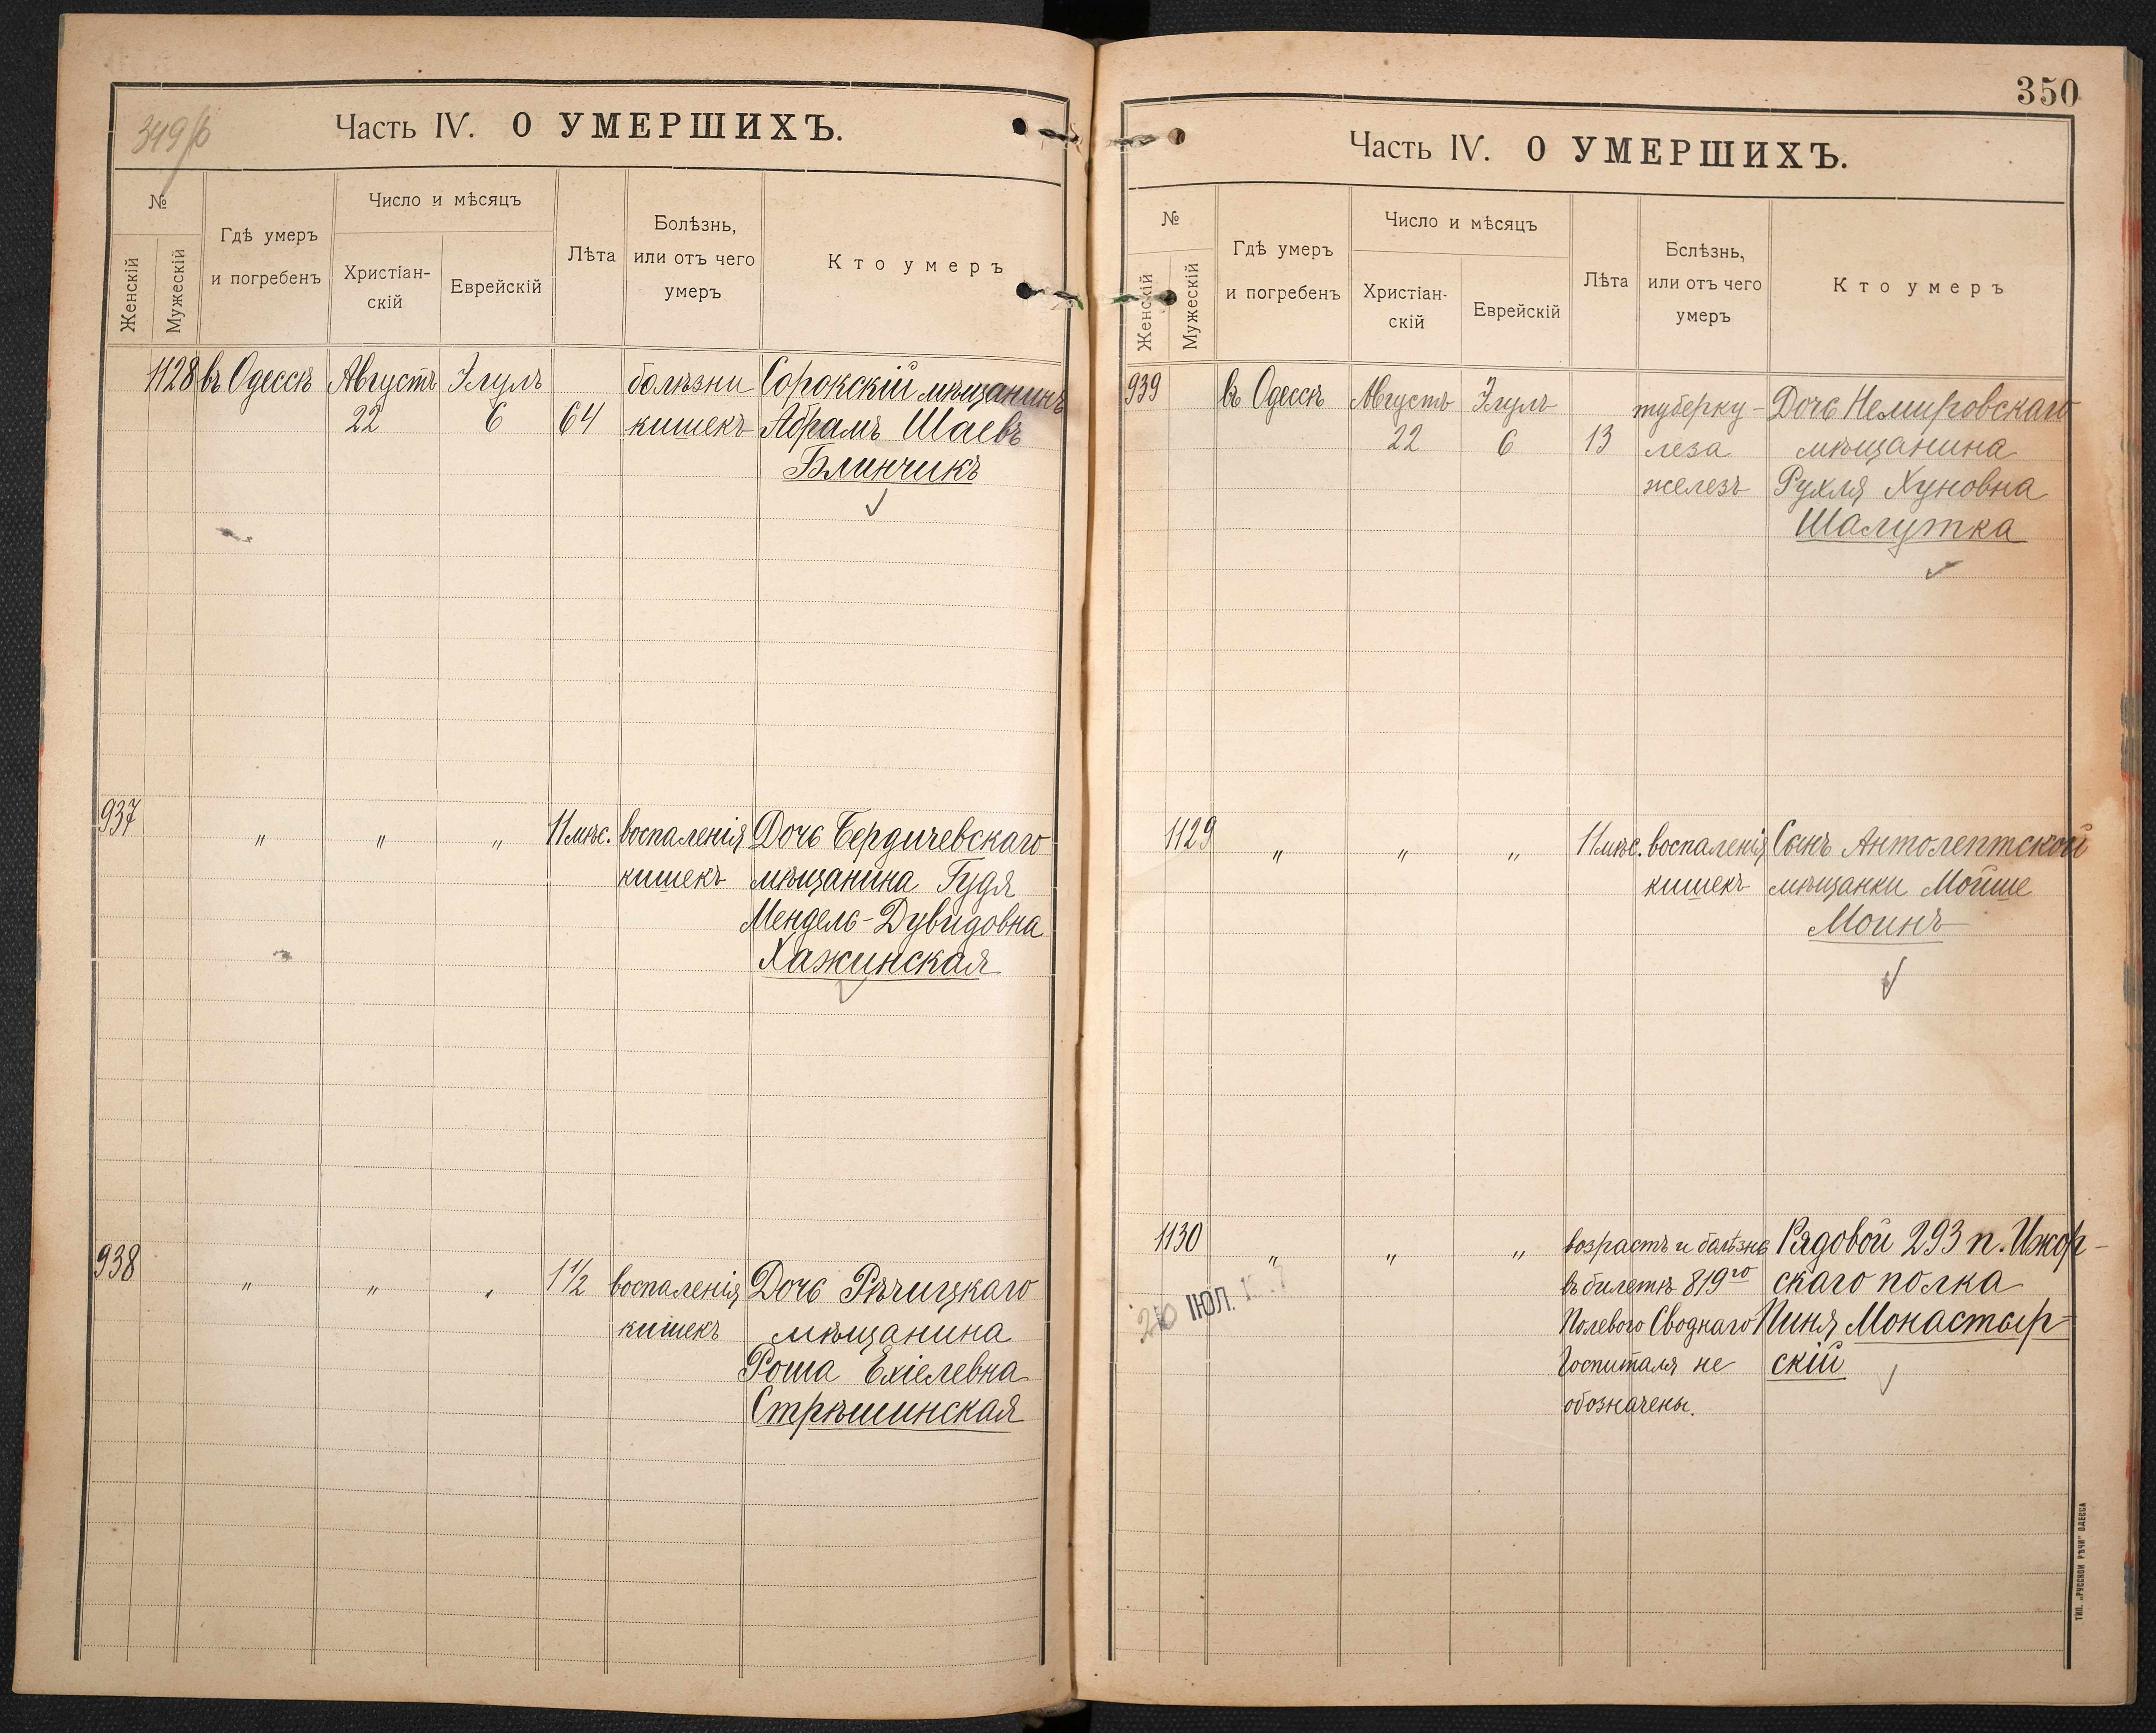 349 об
Часть IV. О УМЕРШИХЪ.
№
Женскій
Мужескій
Гдѣ умеръ
и погребенъ
Число и мѣсяцъ
Христіан-
скій
Еврейскій
Лѣта
Болѣзнь,
или отъ чего
умеръ
Кто умеръ
1128 въ Одессѣ Августъ Элулъ болѣзни Сорокскій мѣщанинъ
22 6 64 кишекъ Абрамъ Шаевъ
Блинчикъ
937 " " " 11 мѣс. воспаленія Дочь Бердичевскаго
кишекъ мѣщанина Гудя
Мендель-Дувидовна
Хажинская
938 " " " 1 1/2 воспаленія Дочь Рѣчицкаго
кишекъ мѣщанина
Роша Ехіелевна
Стрѣшинская
350
Часть IV. О УМЕРШИХЪ.
№
Женскій
Мужескій
Гдѣ умеръ
и погребенъ
Число и мѣсяцъ
Христіан-
скій
Еврейскій
Лѣта
Бслѣзнь,
или отъ чего
умеръ
Кто умеръ
939 въ Одессѣ Августъ Элулъ туберку- Дочь Немировскаго
22 6 13 леза мѣщанина
железъ Рухля Хуновна
Шалутка
1129 " " " 11 мѣс. воспаленія Сынъ Антолептской
кишекъ мѣщанки Мойше
Моинъ
1130 " " " возрастъ и болѣзнь Рядовой 293 п. Ижор-
въ билетѣ 819го скаго полка
Полевого Своднаго Пиня Монастыр-
Госпиталя не скій
обозначены.
20 ІЮЛ.
ТИП. „РУССКОЙ РѢЧИ" ОДЕССА